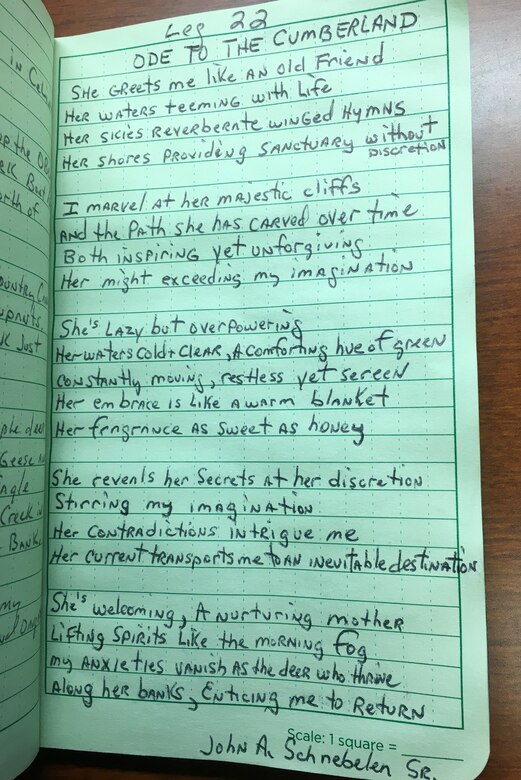 in Cel
Leg 22
ODE TO THE CUMBERLAND
SHE GREETS me like AN old FRiend
HER WATERS teeming with Life
HER SKIES REVERBERATE WINGED HYMNS
HER SHORES PROVIDING SANCTUARY without DISCRETION
I MARVEL AT HER MAJESTIC cliffs
AND the PATH she HAS CARVED OVER time
BOTH INSPIRING yet UNFORGIVING
Her might exceeding my imagination
She's LAZY but overpowering
Her waters cold + CLEAR, A comforting hue of green
constantly moving, restless yet sereen
Her embrace is Like A warm blanket
Her fragrance AS sweet AS honey
She reveals her Secrets AT her discretion
Stirring my imagination
Her CONTRADICTIONS intrigue me
Her current transports me to AN inevitable destination
She's welcoming, A nurturing mother
Lifting Spirits Like the morning fog
my ANXIETIES VANISH AS the deer who thrive
Along her banks, ENTICING me to RETURN
Scale: 1 square =
John A. Schnebelen SR.